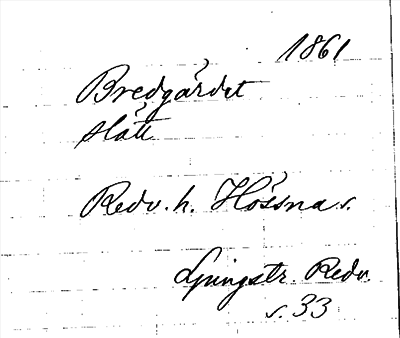 1861
Bredgärdet
slätt
Redv. h. Hössna s.
Ljungstr. Redv.
s. 33